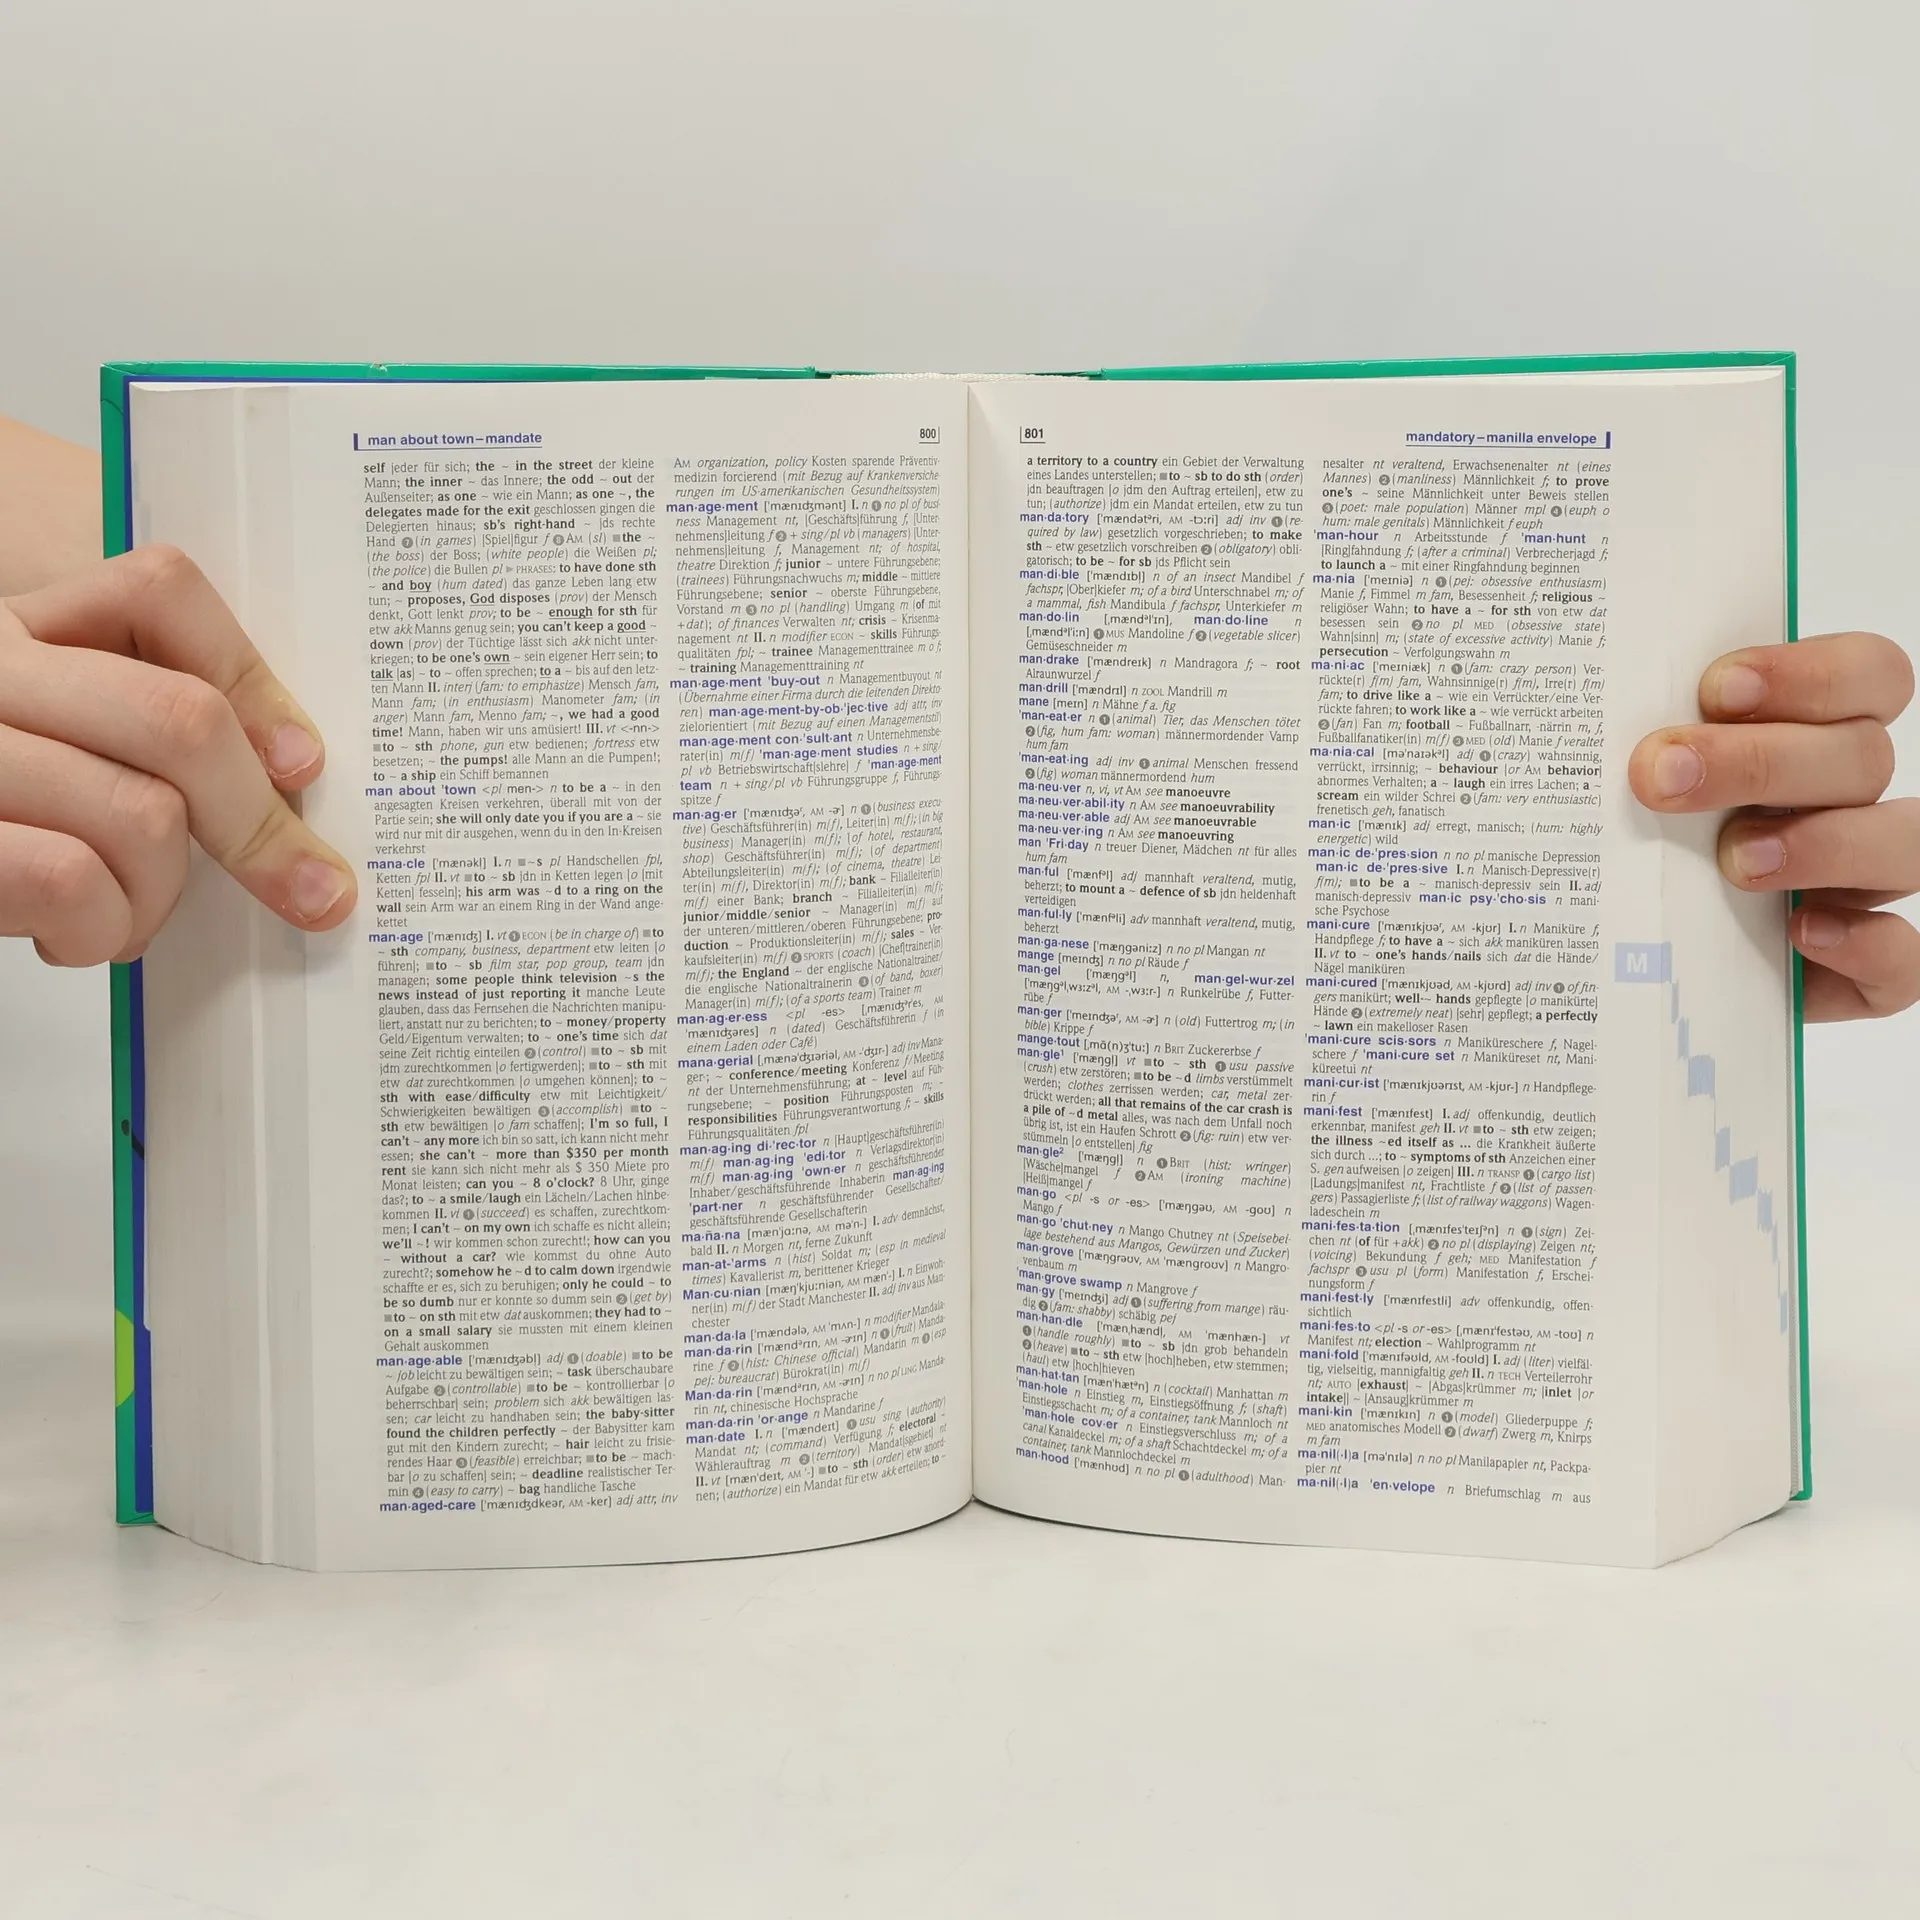 man about town–mandate
800
self jeder für sich; the ~ in the street der kleine
Mann; the inner ~ das Innere; the odd ~ out der
Außenseiter; as one ~ wie ein Mann; as one ~, the
delegates made for the exit geschlossen gingen die
Delegierten hinaus; sb's right-hand ~ jds rechte
Hand ❼ (in games) |Spiel|figur f ❽ AM (sl) ■the ~
(the boss) der Boss; (white people) die Weißen pl;
(the police) die Bullen pl ▶ PHRASES: to have done sth
~ and boy (hum dated) das ganze Leben lang etw
tun; ~ proposes, God disposes (prov) der Mensch
denkt, Gott lenkt prov; to be ~ enough for sth für
etw akk Manns genug sein; you can't keep a good ~
down (prov) der Tüchtige lässt sich akk nicht unter-
kriegen; to be one's own ~ sein eigener Herr sein; to
talk |as| ~ to ~ offen sprechen; to a ~ bis auf den letz-
ten Mann II. interj (fam: to emphasize) Mensch fam,
Mann fam; (in enthusiasm) Manometer fam; (in
anger) Mann fam, Menno fam; ~, we had a good
time! Mann, haben wir uns amüsiert! III. vt <-nn->
■to ~ sth phone, gun etw bedienen; fortress etw
besetzen; ~ the pumps! alle Mann an die Pumpen!;
to ~ a ship ein Schiff bemannen
man about 'town <pl men-> n to be a ~ in den
angesagten Kreisen verkehren, überall mit von der
Partie sein; she will only date you if you are a ~ sie
wird nur mit dir ausgehen, wenn du in den In-Kreisen
verkehrst
mana·cle ['mænəkl] I. n ■~s pl Handschellen fpl,
Ketten fpl II. vt ■to ~ sb jdn in Ketten legen |o |mit
Ketten| fesseln|; his arm was ~d to a ring on the
wall sein Arm war an einem Ring in der Wand ange-
kettet
man·age ['mænɪdʒ] I. vt ❶ ECON (be in charge of) ■to
~ sth company, business, department etw leiten |o
führen|; ■to ~ sb film star, pop group, team jdn
managen; some people think television ~s the
news instead of just reporting it manche Leute
glauben, dass das Fernsehen die Nachrichten manipu-
liert, anstatt nur zu berichten; to ~ money/property
Geld/Eigentum verwalten; to ~ one's time sich dat
seine Zeit richtig einteilen ❷ (control) ■to ~ sb mit
jdm zurechtkommen |o fertigwerden|; ■to ~ sth mit
etw dat zurechtkommen |o umgehen können|; to ~
sth with ease/difficulty etw mit Leichtigkeit/
Schwierigkeiten bewältigen ❸ (accomplish) ■to ~
sth etw bewältigen |o fam schaffen|; I'm so full, I
can't ~ any more ich bin so satt, ich kann nicht mehr
essen; she can't ~ more than $350 per month
rent sie kann sich nicht mehr als $ 350 Miete pro
Monat leisten; can you ~ 8 o'clock? 8 Uhr, ginge
das?; to ~ a smile/laugh ein Lächeln/Lachen hinbe-
kommen II. vi ❶ (succeed) es schaffen, zurechtkom-
men; I can't ~ on my own ich schaffe es nicht allein;
we'll ~! wir kommen schon zurecht!; how can you
~ without a car? wie kommst du ohne Auto
zurecht?; somehow he ~d to calm down irgendwie
schaffte er es, sich zu beruhigen; only he could ~ to
be so dumb nur er konnte so dumm sein ❷ (get by)
■to ~ on sth mit etw dat auskommen; they had to ~
on a small salary sie mussten mit einem kleinen
Gehalt auskommen
man·age·able ['mænɪdʒəbl] adj ❶ (doable) ■to be
~ job leicht zu bewältigen sein; ~ task überschaubare
Aufgabe ❷ (controllable) ■to be ~ kontrollierbar |o
beherrschbar| sein; problem sich akk bewältigen las-
sen; car leicht zu handhaben sein; the baby-sitter
found the children perfectly ~ der Babysitter kam
gut mit den Kindern zurecht; ~ hair leicht zu frisie-
rendes Haar ❸ (feasible) erreichbar; ■to be ~ mach-
bar |o zu schaffen| sein; ~ deadline realistischer Ter-
min ❹ (easy to carry) ~ bag handliche Tasche
man·aged-care ['mænɪdʒdkeər, AM -ker] adj attr, inv
AM organization, policy Kosten sparende Präventiv-
medizin forcierend (mit Bezug auf Krankenversiche-
rungen im US-amerikanischen Gesundheitssystem)
man·age·ment ['mænɪdʒmənt] I. n ❶ no pl of busi-
ness Management nt, |Geschäfts|führung f, |Unter-
nehmens|leitung f ❷ + sing/pl vb (managers) |Unter-
nehmens|leitung f, Management nt; of hospital,
theatre Direktion f; junior ~ untere Führungsebene;
(trainees) Führungsnachwuchs m; middle ~ mittlere
Führungsebene; senior ~ oberste Führungsebene,
Vorstand m ❸ no pl (handling) Umgang m |of mit
+dat); of finances Verwalten nt; crisis ~ Krisenma-
nagement nt II. n modifier ECON ~ skills Führungs-
qualitäten fpl; ~ trainee Managementtrainee m o f;
~ training Managementtraining nt
man·age·ment 'buy-out n Managementbuyout nt
(Übernahme einer Firma durch die leitenden Direkto-
ren) man·age·ment-by-ob·'jec·tive adj attr, inv
zielorientiert (mit Bezug auf einen Managementstil)
man·age·ment con·'sult·ant n Unternehmensbe-
rater(in) m(f) 'man·age·ment studies n + sing/
pl vb Betriebswirtschaft|slehre| f 'man·age·ment
team n + sing/pl vb Führungsgruppe f, Führungs-
spitze f
man·ag·er ['mænɪdʒəʳ, AM -ɚ] n ❶ (business execu-
tive) Geschäftsführer(in) m(f), Leiter(in) m(f); (in big
business) Manager(in) m(f); (of hotel, restaurant,
shop) Geschäftsführer(in) m(f); (of department)
Abteilungsleiter(in) m(f); (of cinema, theatre) Lei-
ter(in) m(f), Direktor(in) m(f); bank ~ Filialleiter(in)
m(f) einer Bank; branch ~ Filialleiter(in) m(f);
junior/middle/senior ~ Manager(in) m(f) auf
der unteren/mittleren/oberen Führungsebene; pro-
duction ~ Produktionsleiter(in) m(f); sales ~ Ver-
kaufsleiter(in) m(f) ❷ SPORTS (coach) |Chef|trainer(in)
m(f); the England ~ der englische Nationaltrainer/
die englische Nationaltrainerin ❸ (of band, boxer)
Manager(in) m(f); (of a sports team) Trainer m
man·ag·er·ess <pl -es> [ˌmænɪdʒəʳ'es, AM
'mænɪdʒərəs] n (dated) Geschäftsführerin f (in
einem Laden oder Café)
mana·gerial [ˌmænə'dʒɪəriəl, AM -'dʒɪr-] adj inv Mana-
ger-; ~ conference/meeting Konferenz f/Meeting
nt der Unternehmensführung; at ~ level auf Füh-
rungsebene; ~ position Führungsposten m; ~
responsibilities Führungsverantwortung f; ~ skills
Führungsqualitäten fpl
man·ag·ing di·'rec·tor n |Haupt|geschäftsführer(in)
m(f) man·ag·ing 'edi·tor n Verlagsdirektor(in)
m(f) man·ag·ing 'own·er n geschäftsführender
Inhaber/geschäftsführende Inhaberin man·ag·ing
'part·ner n geschäftsführender Gesellschafter/
geschäftsführende Gesellschafterin
ma·ña·na [mæn'jɑːnə, AM mə'n-] I. adv demnächst,
bald II. n Morgen nt, ferne Zukunft
man-at-'arms n (hist) Soldat m; (esp in medieval
times) Kavallerist m, berittener Krieger
Man·cu·nian [mæŋ'kjuːniən, AM mæn'-] I. n Einwoh-
ner(in) m(f) der Stadt Manchester II. adj inv aus Man-
chester
man·da·la ['mændələ, AM 'mʌn-] n modifier Mandala-
man·da·rin ['mændᵊrɪn, AM -ɚɪn] n ❶ (fruit) Manda-
rine f ❷ (hist: Chinese official) Mandarin m ❸ (esp
pej: bureaucrat) Bürokrat(in) m(f)
Man·da·rin ['mændᵊrɪn, AM -ɚɪn] n no pl LING Manda-
rin nt, chinesische Hochsprache
man·da·rin 'or·ange n Mandarine f
man·date I. n ['mændeɪt] ❶ usu sing (authority)
Mandat nt; (command) Verfügung f; electoral ~
Wählerauftrag m ❷ (territory) Mandat|sgebiet| nt
II. vt [mæn'deɪt, AM '-] ■to ~ sth (order) etw anord-
nen; (authorize) ein Mandat für etw akk erteilen; to ~
801
mandatory–manilla envelope
a territory to a country ein Gebiet der Verwaltung
eines Landes unterstellen; ■to ~ sb to do sth (order)
jdn beauftragen |o jdm den Auftrag erteilen|, etw zu
tun; (authorize) jdm ein Mandat erteilen, etw zu tun
man·da·tory ['mændətᵊri, AM -tɔːri] adj inv ❶ (re-
quired by law) gesetzlich vorgeschrieben; to make
sth ~ etw gesetzlich vorschreiben ❷ (obligatory) obli-
gatorisch; to be ~ for sb jds Pflicht sein
man·di·ble ['mændɪbl] n of an insect Mandibel f
fachspr, |Ober|kiefer m; of a bird Unterschnabel m; of
a mammal, fish Mandibula f fachspr, Unterkiefer m
man·do·lin [ˌmændᵊl'ɪn], man·do·line n
[ˌmændᵊl'iːn] ❶ MUS Mandoline f ❷ (vegetable slicer)
Gemüseschneider m
man·drake ['mændreɪk] n Mandragora f; ~ root
Alraunwurzel f
man·drill ['mændrɪl] n ZOOL Mandrill m
mane [meɪn] n Mähne f a. fig
'man-eat·er n ❶ (animal) Tier, das Menschen tötet
❷ (fig, hum fam: woman) männermordender Vamp
hum fam
'man-eat·ing adj inv ❶ animal Menschen fressend
❷ (fig) woman männermordend hum
ma·neu·ver n, vi, vt AM see manoeuvre
ma·neu·ver·abil·ity n AM see manoeuvrability
ma·neu·ver·able adj AM see manoeuvrable
ma·neu·ver·ing n AM see manoeuvring
man 'Fri·day n treuer Diener, Mädchen nt für alles
hum fam
man·ful ['mænfᵊl] adj mannhaft veraltend, mutig,
beherzt; to mount a ~ defence of sb jdn heldenhaft
verteidigen
man·ful·ly ['mænfᵊli] adv mannhaft veraltend, mutig,
beherzt
man·ga·nese ['mæŋgəniːz] n no pl Mangan nt
mange [meɪndʒ] n no pl Räude f
man·gel ['mæŋgᵊl], man·gel-wur·zel
['mæŋgᵊlˌwɜːzᵊl, AM -ˌwɜːr-] n Runkelrübe f, Futter-
rübe f
man·ger ['meɪndʒəʳ, AM -ɚ] n (old) Futtertrog m; (in
bible) Krippe f
mange·tout [ˌmɑ̃(n)ʒ'tuː] n BRIT Zuckererbse f
man·gle¹ ['mæŋgl] vt ■to ~ sth ❶ usu passive
(crush) etw zerstören; ■to be ~d limbs verstümmelt
werden; clothes zerrissen werden; car, metal zer-
drückt werden; all that remains of the car crash is
a pile of ~d metal alles, was nach dem Unfall noch
übrig ist, ist ein Haufen Schrott ❷ (fig: ruin) etw ver-
stümmeln |o entstellen| fig
man·gle² ['mæŋgl] n ❶ BRIT (hist: wringer)
|Wäsche|mangel f ❷ AM (ironing machine)
|Heiß|mangel f
man·go <pl -s or -es> ['mæŋgəʊ, AM -goʊ] n
Mango f
man·go 'chut·ney n Mango Chutney nt (Speisebei-
lage bestehend aus Mangos, Gewürzen und Zucker)
man·grove ['mæŋgrəʊv, AM 'mæŋgroʊv] n Mangro-
venbaum m
'man·grove swamp n Mangrove f
man·gy ['meɪndʒi] adj ❶ (suffering from mange) räu-
dig ❷ (fam: shabby) schäbig pej
man·han·dle ['mænˌhændl, AM 'mænhæn-] vt
❶ (handle roughly) ■to ~ sb jdn grob behandeln
❷ (heave) ■to ~ sth etw |hoch|heben, etw stemmen;
(haul) etw |hoch|hieven
man·hat·tan [mæn'hætᵊn] n (cocktail) Manhattan m
'man·hole n Einstieg m, Einstiegsöffnung f; (shaft)
Einstiegsschacht m; of a container, tank Mannloch nt
'man·hole cov·er n Einstiegsverschluss m; of a
canal Kanaldeckel m; of a shaft Schachtdeckel m; of a
container, tank Mannlochdeckel m
man·hood ['mænhʊd] n no pl ❶ (adulthood) Man-
nesalter nt veraltend, Erwachsenenalter nt (eines
Mannes) ❷ (manliness) Männlichkeit f; to prove
one's ~ seine Männlichkeit unter Beweis stellen
❸ (poet: male population) Männer mpl ❹ (euph o
hum: male genitals) Männlichkeit f euph
'man-hour n Arbeitsstunde f 'man·hunt n
|Ring|fahndung f; (after a criminal) Verbrecherjagd f;
to launch a ~ mit einer Ringfahndung beginnen
ma·nia ['meɪniə] n ❶ (pej: obsessive enthusiasm)
Manie f, Fimmel m fam, Besessenheit f; religious ~
religiöser Wahn; to have a ~ for sth von etw dat
besessen sein ❷ no pl MED (obsessive state)
Wahn|sinn| m; (state of excessive activity) Manie f;
persecution ~ Verfolgungswahn m
ma·ni·ac ['meɪniæk] n ❶ (fam: crazy person) Ver-
rückte(r) f(m) fam, Wahnsinnige(r) f(m), Irre(r) f(m)
fam; to drive like a ~ wie ein Verrückter/eine Ver-
rückte fahren; to work like a ~ wie verrückt arbeiten
❷ (fan) Fan m; football ~ Fußballnarr, -närrin m, f,
Fußballfanatiker(in) m(f) ❸ MED (old) Manie f veraltet
ma·nia·cal [mə'naɪəkᵊl] adj ❶ (crazy) wahnsinnig,
verrückt, irrsinnig; ~ behaviour |or AM behavior|
abnormes Verhalten; a ~ laugh ein irres Lachen; a ~
scream ein wilder Schrei ❷ (fam: very enthusiastic)
frenetisch geh, fanatisch
man·ic ['mænɪk] adj erregt, manisch; (hum: highly
energetic) wild
man·ic de·'pres·sion n no pl manische Depression
man·ic de·'pres·sive I. n Manisch-Depressive(r)
f(m); ■to be a ~ manisch-depressiv sein II. adj
manisch-depressiv man·ic psy·'cho·sis n mani-
sche Psychose
mani·cure ['mænɪkjʊəʳ, AM -kjʊr] I. n Maniküre f,
Handpflege f; to have a ~ sich akk maniküren lassen
II. vt to ~ one's hands/nails sich dat die Hände/
Nägel maniküren
mani·cured ['mænɪkjʊəd, AM -kjʊrd] adj inv ❶ of fin-
gers manikürt; well-~ hands gepflegte |o manikürte|
Hände ❷ (extremely neat) |sehr| gepflegt; a perfectly
~ lawn ein makelloser Rasen
'mani·cure scis·sors n Maniküreschere f, Nagel-
schere f 'mani·cure set n Maniküreset nt, Mani-
küreetui nt
mani·cur·ist ['mænɪkjʊərɪst, AM -kjʊr-] n Handpflege-
rin f
mani·fest ['mænɪfest] I. adj offenkundig, deutlich
erkennbar, manifest geh II. vt ■to ~ sth etw zeigen;
the illness ~ed itself as ... die Krankheit äußerte
sich durch ...; to ~ symptoms of sth Anzeichen einer
S. gen aufweisen |o zeigen| III. n TRANSP ❶ (cargo list)
|Ladungs|manifest nt, Frachtliste f ❷ (list of passen-
gers) Passagierliste f; (list of railway waggons) Wagen-
ladeschein m
mani·fes·ta·tion [ˌmænɪfes'teɪʃᵊn] n ❶ (sign) Zei-
chen nt (of für +akk) ❷ no pl (displaying) Zeigen nt;
(voicing) Bekundung f geh; MED Manifestation f
fachspr ❸ usu pl (form) Manifestation f, Erschei-
nungsform f
mani·fest·ly ['mænɪfestli] adv offenkundig, offen-
sichtlich
mani·fes·to <pl -s or -es> [ˌmænɪ'festəʊ, AM -toʊ] n
Manifest nt; election ~ Wahlprogramm nt
mani·fold ['mænɪfəʊld, AM -foʊld] I. adj (liter) vielfäl-
tig, vielseitig, mannigfaltig geh II. n TECH Verteilerrohr
nt; AUTO |exhaust| ~ |Abgas|krümmer m; |inlet |or
intake|| ~ |Ansaug|krümmer m
mani·kin ['mænɪkɪn] n ❶ (model) Gliederpuppe f;
MED anatomisches Modell ❷ (dwarf) Zwerg m, Knirps
m fam
ma·nil(·l)a [mə'nɪlə] n no pl Manilapapier nt, Packpa-
pier nt
ma·nil(·l)a 'en·velope n Briefumschlag m aus
M